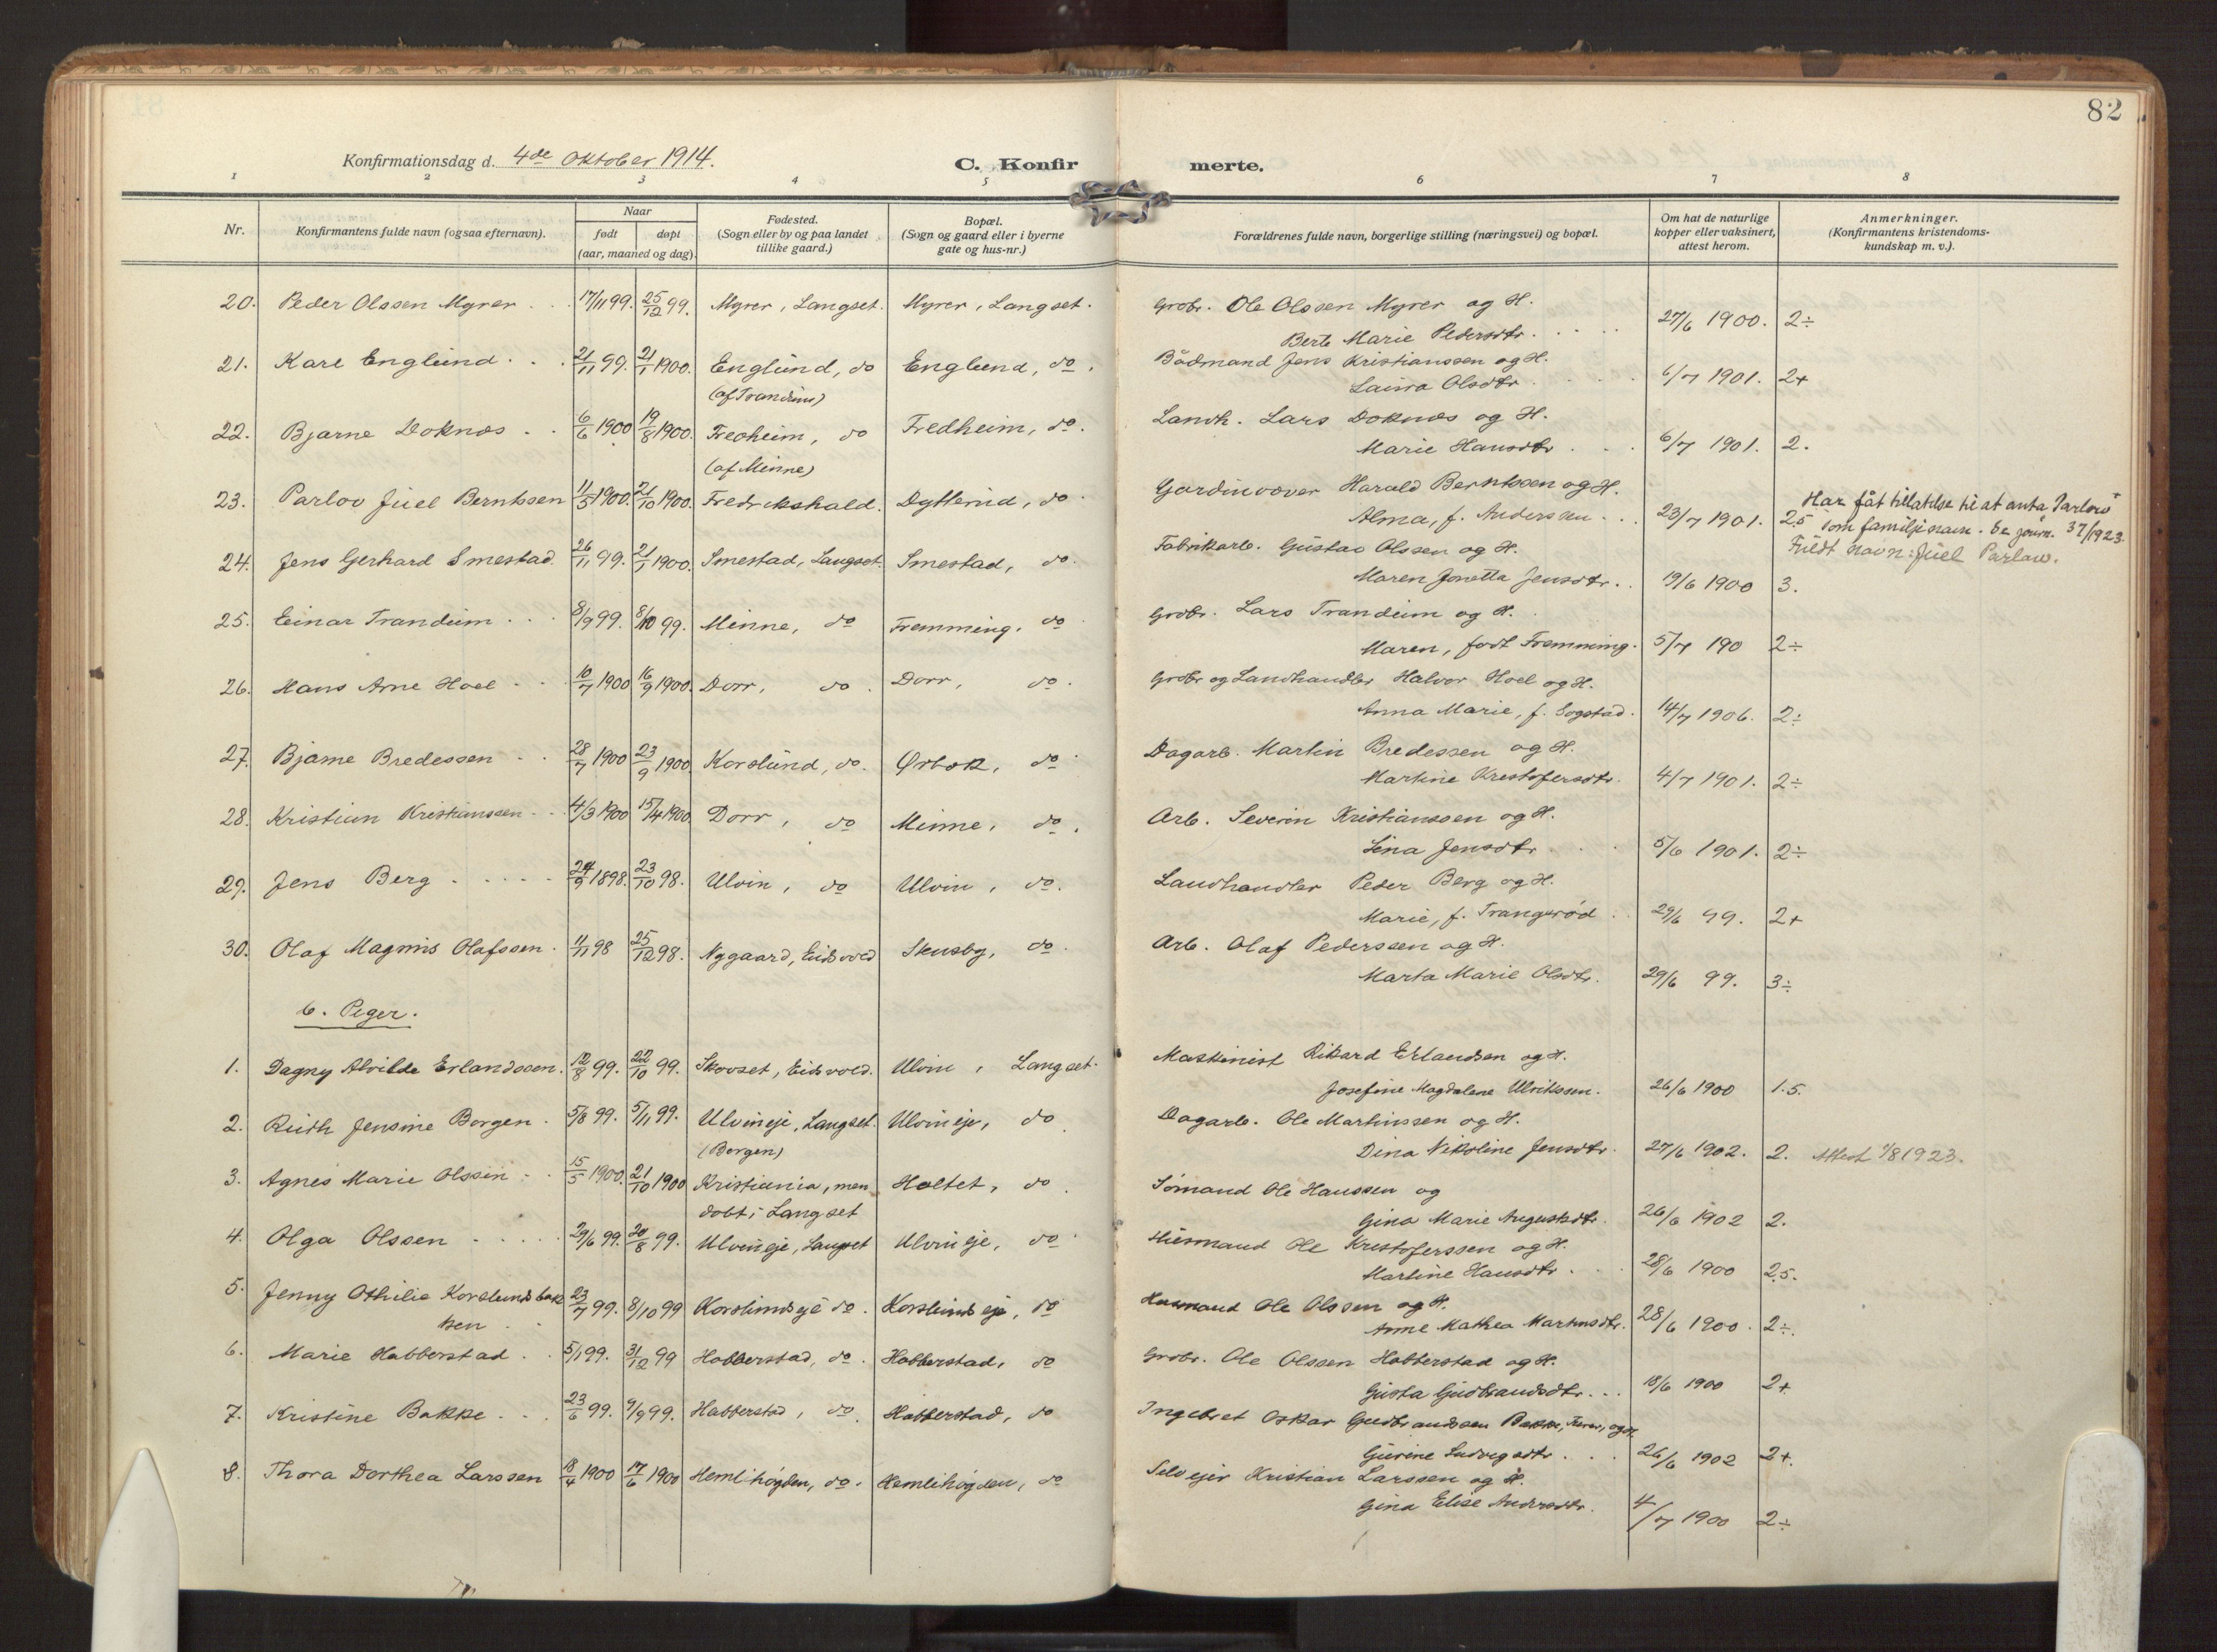 82
Konfirmationsdag d. 4de Oktober 1914.
C. Konfirmerte.
1 2 3 4 5 6 7 8
Nr.
Konfirmantens fulde navn (ogsaa efternavn).
Naar
født døpt
(aar, maaned og dag)
Fødested.
(Sogn eller by og paa landet
tillike gaard.)
Bopæl.
(Sogn og gaard eller i byerne
gate og hus-nr.)
Forældrenes fulde navn, borgerlige stilling (næringsvei) og bopæl.
Om hat de naturlige
kopper eller vaksinert,
attest herom.
Anmerkninger.
(Konfirmantens kristendoms-
kundskap m. v.).
20. Peder Olssen Myrer 17/11 99. 25/12 99. Myrer, Langset. Myrer, Langset. Grdbr. Ole Olssen Myrer og H.
Berte Marie Pedersdtr. 27/6 1900. 2÷
21. Karl Englund 21/11 99. 21/1 1900. Englund, do Englund, do. Bådmand Jens Kristianssen og H.
(af Trandum) Laura Olsdtr 6/7 1901. 2+
22. Bjarne Doknæs 6/6 1900 19/8 1900. Fredheim, do Fredheim, do. Landh. Lars Doknæs og H.
(af Minne) Marie Hansdtr 6/7 1901. 2.
23. Parlov Juel Berntssen 11/5 1900. 21/10 1900. Fredrikshald. Dytterud, do. Gardinvæver Harald Berntssen og H.
Alma, f. Anderssen 23/7 1901. 2,5 Har fåt tillatelse til at anta Parlow
som familjenavn. Se journ. 37/1923.
Fuldt navn: Juel Parlow.
24. Jens Gerhard Smestad 26/11 99. 21/1 1900. Smestad, Langset. Smestad, do. Fabrikarb. Gustav Olssen og H.
Maren Jonetta Jensdtr. 19/6 1900 3.
25. Einar Trandum 8/9 99. 8/10 99. Minne, do Fremming, do Grdbr. Lars Trandum og H.
Maren, født Fremming. 5/7 190 2÷
26. Hans Arne Hoel 10/7 1900 16/9 1900. Dorr, do. Dorr, do. Grdbr og Landhandler Halvor Hoel og H.
Anna Marie, f. Sogstad. 14/7 1906. 2÷
27. Bjarne Bredessen 28/7 1900 23/9 1900 Korslund, do. Ørbæk, do Dagarb. Martin Bredessen og H.
Martine Kristofersdtr. 4/7 1901. 2÷
28. Kristian Kristianssen 4/3 1900 15/4 1900 Dorr, do Minne, do. Arb. Severin Kristianssen og H.
Lina Jensdtr 5/6 1901. 2÷
29. Jens Berg 24/9 1898. 23/10 98. Ulvin, do Ulvin, do. Landhandler Peder Berg og H.
Marie, f. Trangsrød 29/6 99. 2+
30. Olaf Magnus Olafssen. 11/11 98 25/12 98. Nygaard, Eidsvold Skusby, do. Arb. Olaf Pederssen og H.
Marta Marie Olsdtr. 29/6 99. 3÷
b. Piger.
1. Dagny Alvilde Erlandssen. 12/8 99. 22/10 99. Skovset, Eidsvold. Ulvin, Langset. Maskinist Rikard Erlandsen og H.
Josefine Magdalene Ulrikssen. 26/6 1900 1.5.
2. Ruth Jensine Borgen 5/8 99. 5/11 99. Ulvineje, Langset. Ulvineje, do Dagarb. Ole Martinssen og H.
(Borgen) Dina Nikoline Jensdtr. 27/6 1902. 2. Attest 1/8 1923.
3. Agnes Marie Olssen 15/5 1900. 21/10 1900 Kristiania, men Holtet, do. Sømand Ole Hanssen og
døbt i Langset Gina Marie Augustsdtr. 26/6 1902 2.
4. Olga Olssen 29/6 99. 20/8 99. Ulvineje, Langset Ulvineje, do Husmand Ole Kristoferssen og H.
Martine Hansdtr 28/6 1900 2.5.
5. Jenny Othilie Korslundsbak 23/7 99. 8/10 99 Korslundseje do. Korslundseje, do Husmand Ole Olssen og H.
ken Anne Mathea Martinsdtr. 28/6 1900. 2÷.
6. Marie Habberstad 5/11 99. 31/12 99 Habberstad, do. Habberstad, do Grdbr. Ole Olssen Habberstad og H.
Gusta Gudbrandsdtr. 18/6 1900 2+
7. Kristine Bakke 23/6 99. 9/9 99. Habberstad, do Habberstad, do Ingebret Oskar Gudbrandssen Bakke, og H.
Gurine Ludvigsdtr 26/6 1902 2+.
8. Thora Dorthea Larssen 18/4 1900 17/6 1900 Hemlihøgden, do. Hemlihøgden, do Selvejer Kristian Larssen og H.
Gina Elise Andersdtr. 4/7 1900 2÷